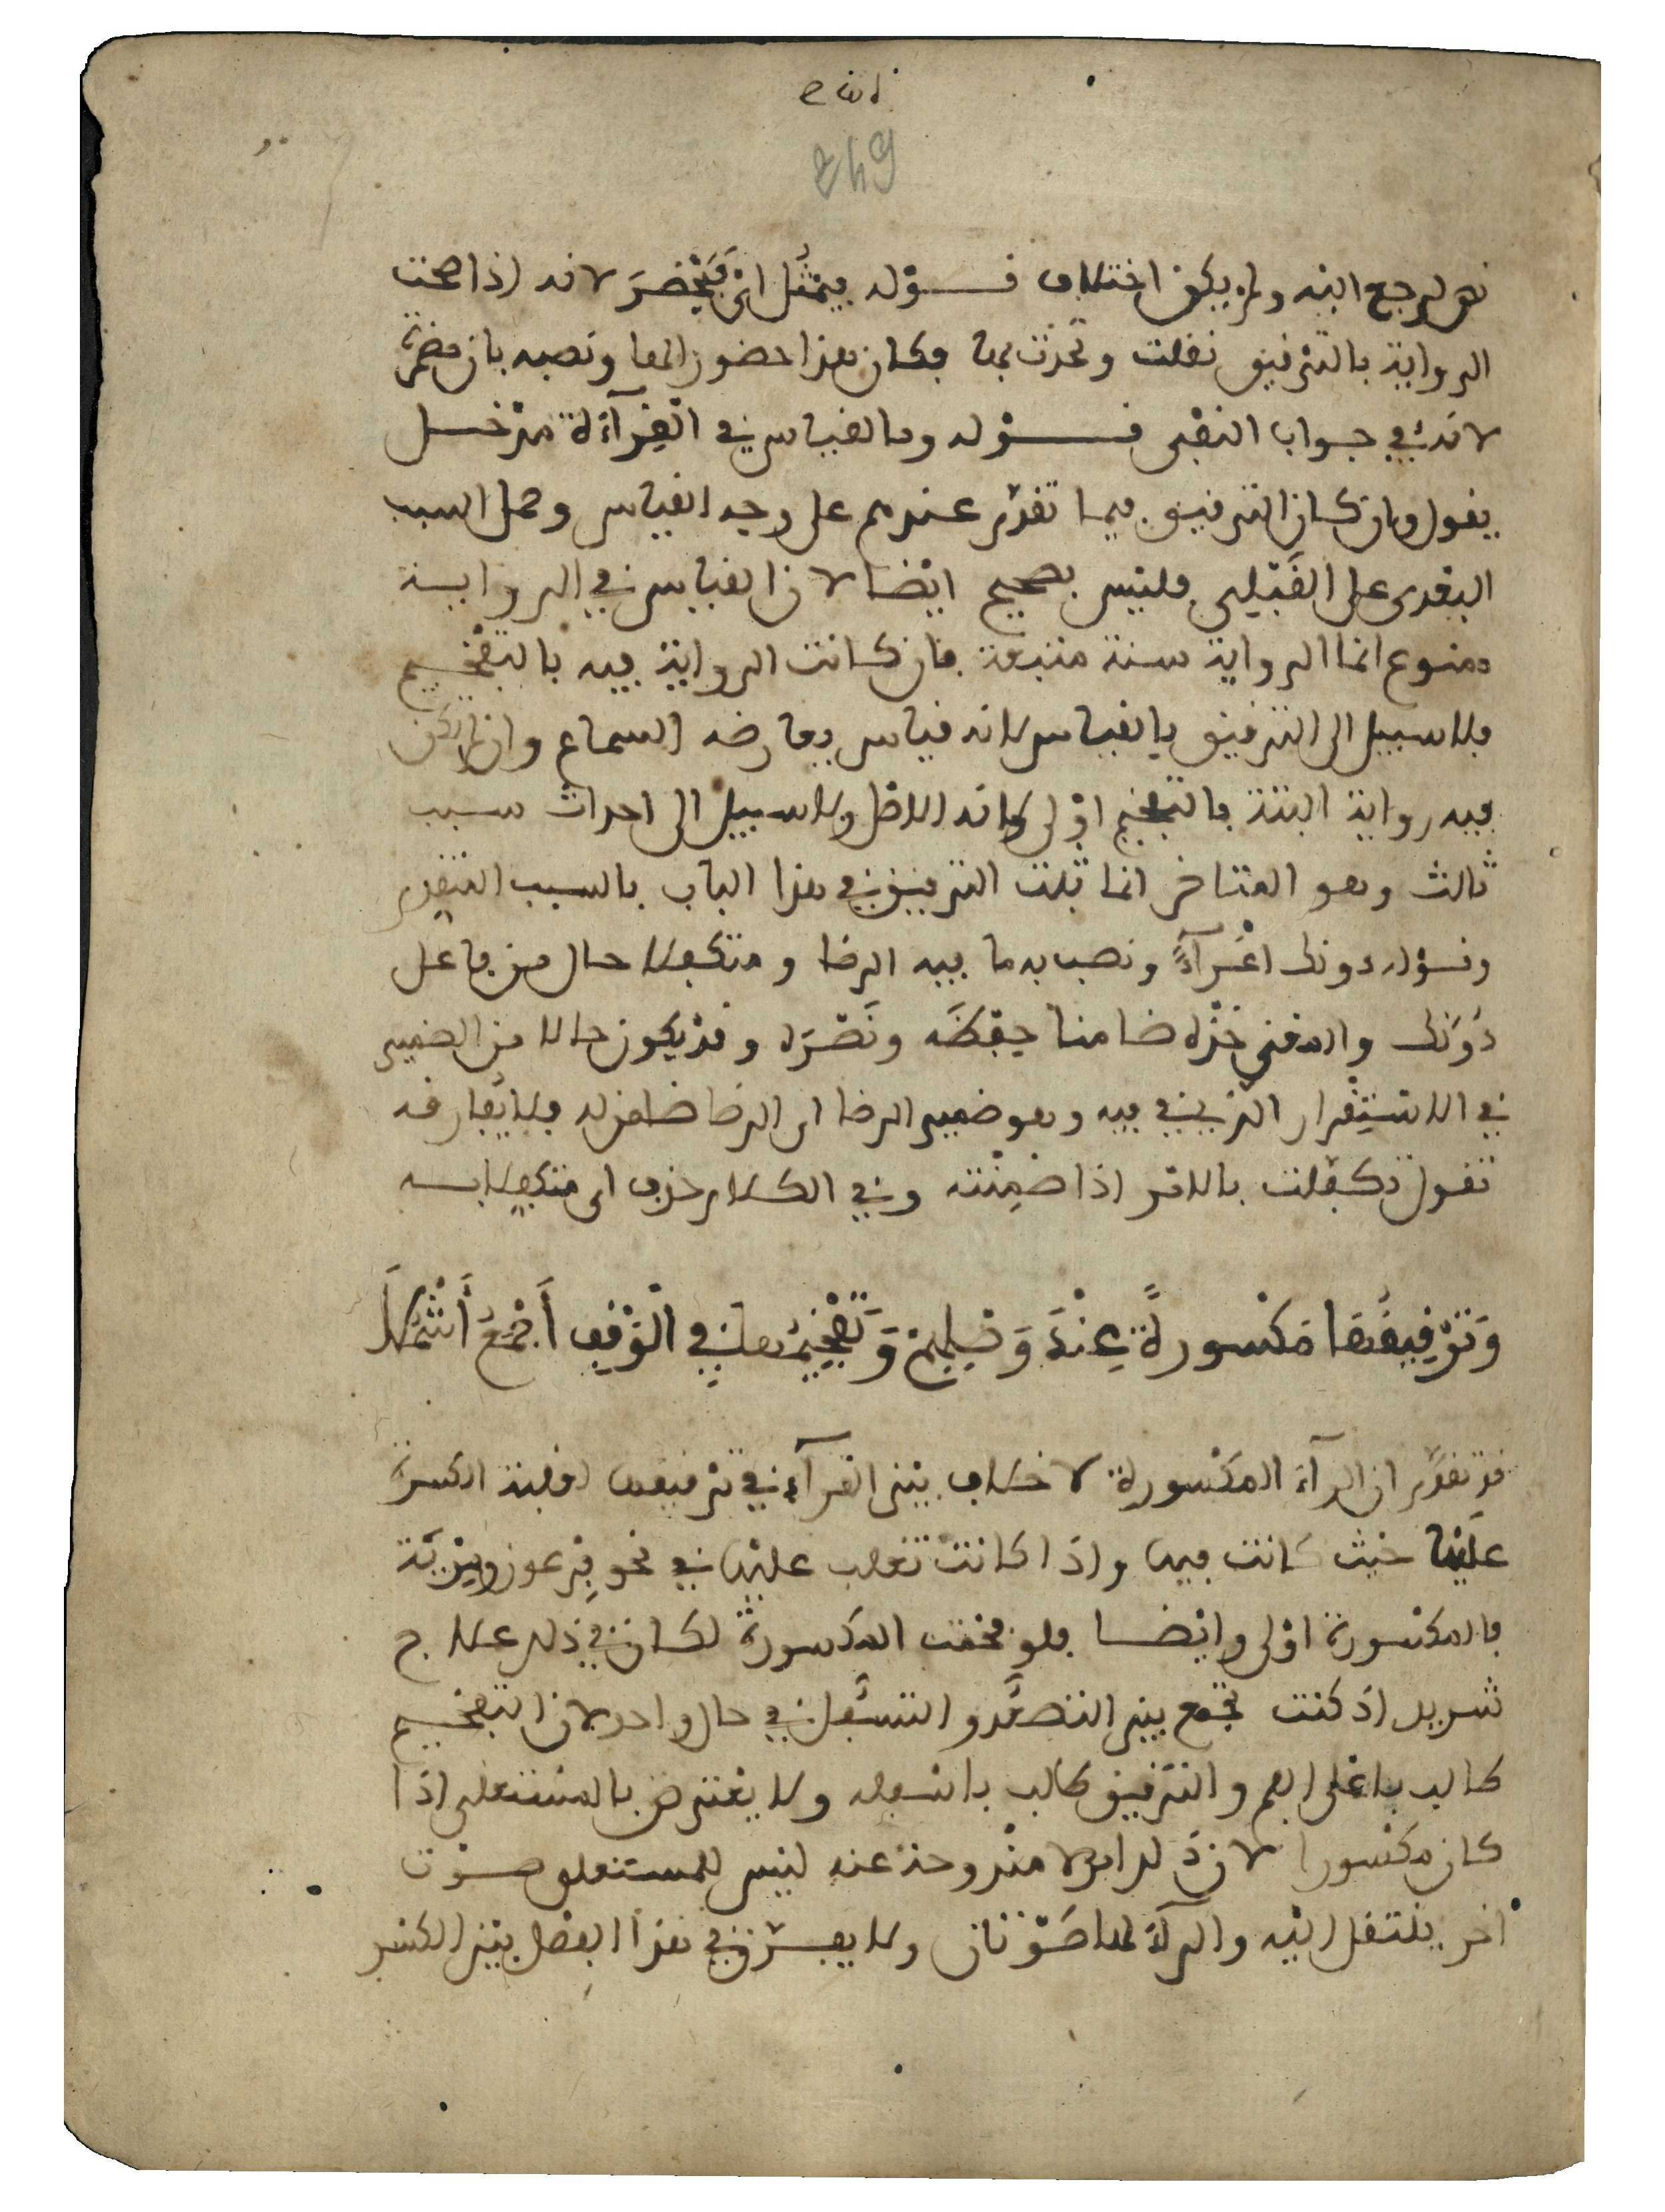 649
نص لرجع اليه ولم يكن اختلاف قوله فيمثل اي فيحضر لانه اذا صحت
الرواية بالترقيق نقلت وتحدث بها فكان هذا حضورا لها ونصبه بان مضمرة
لانه في جواب النفي قوله وما لقياس في القرآءة مدخل
يقول وان كان الترقيق فيما تقدم عندهم على وجه القياس وحمل السبب
البعدي على القبلي فليس بصحيح ايضا لان القياس في الرواية
ممنوع انما الرواية سنة متبعة فان كانت الرواية فيه بالتفخيم
فلا سبيل الى الترقيق بالقياس لانه قياس يعارضه السماع وان لم تكن
فيه رواية البتة فالتفخيم اولى لانه الاصل ولا سبيل الى احداث سبب
ثالث وهو المتاخر انما ثبت الترقيق في هذا الباب بالسبب المتقدم
وقوله دونك اغرآء ونصب به ما فيه الرضا ومتكفلا حال من فاعل
دونك والمعنى خذه ضامنا حفظه ونصره وقد يكون حالا من الضمير
في الاستقرار الذي في فيه وهو ضمير الرضا اي الرضا ضامن له فلا يفارقه
تقول تكفلت بالامر اذا ضمنته وفي الكلام حذف اي متكفلا به
وَتَرْقِيقُهَا مَكْسُورَةً عِنْدَ وَصْلِهِمْ وَتَفْخِيمُهَا فِي الْوَقْفِ أَجْمَعُ أَشْمُلَا
قد تقدم ان الرآء المكسورة لا خلاف بين القرآء في ترقيقها لغلبة الكسرة
عليها حيث كانت فيها واذا كانت تغلب عليها في نحو فرعون ومرية
فالمكسورة اولى وايضا فلو فخمت المكسورة لكان في ذلك علاج
شديد اذ كنت تجمع بين التصعد والتسفل في حال واحد لان التفخيم
طالب باعلى الفم والترقيق طالب باسفله ولا يعترض بالمستعلي اذا
كان مكسورا لان ذلك امر لا مندوحة عنه ليس للمستعلي صوت
اخر ينتقل اليه والرآء لها صوتان ولا يفرق في هذا الفصل بين الكسر